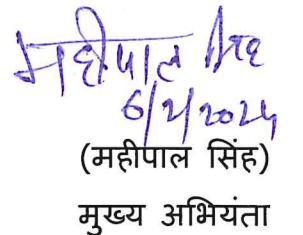 महीपाल सिंह
6/2/2024
(महीपाल सिंह)
मुख्य अभियंता